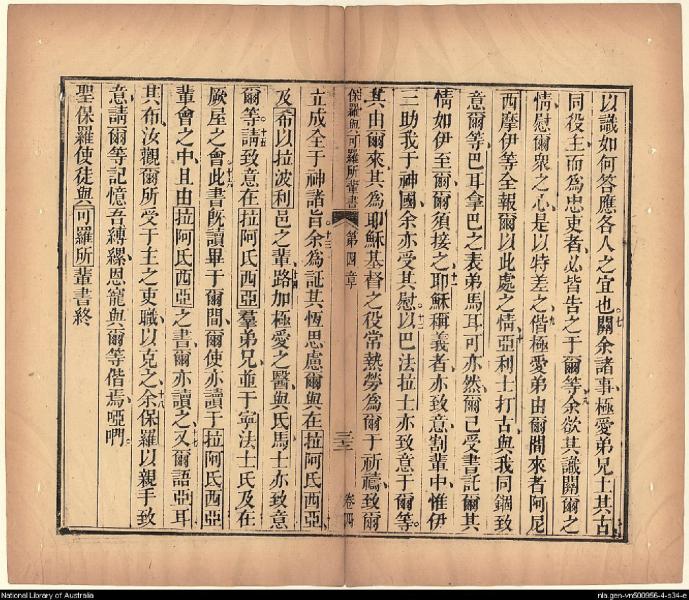 以識如何答應各人之宜也七關余諸事極愛弟兄士其古
同役主而為忠吏者必皆告之于爾等八余欲其識關爾之
情慰爾眾之心是以特差之九偕極愛弟由爾間來者阿尼
西摩伊等全報爾以此處之情十亞利士打古與我同錮致
意爾等巴耳拿巴之表弟馬耳可亦然爾已受書託爾其
情如伊至爾爾須接之十一耶穌稱義者亦致意割輩中惟伊
三助我于神國余亦受其慰十二以巴法拉士亦致意于爾等
其由爾來其為耶穌基督之役常熱勞為爾于祈禱致爾
保羅與可羅所輩書 第四章 三三 卷四
立成全于神諸旨十三余為証其恆思慮爾與在拉阿氏西亞
及希以拉波利邑之輩十四路加極愛之醫與氏馬士亦致意
爾等十五請致意在拉阿氏西亞羣弟兄並于寧法士氏及在
厥屋之會十六此書既讀畢于爾間爾使亦讀于拉阿氏西亞
輩會之中且由拉阿氏西亞之書爾亦讀之十七又爾語亞耳
其布汝觀爾所受于主之吏職以克之十八余保羅以親手致
意請爾等記憶吾縛縲恩寵與爾等偕焉啞們
聖保羅使徒與可羅所輩書終
National Library of Australia
nla.gen-vn500956-4-s34-e